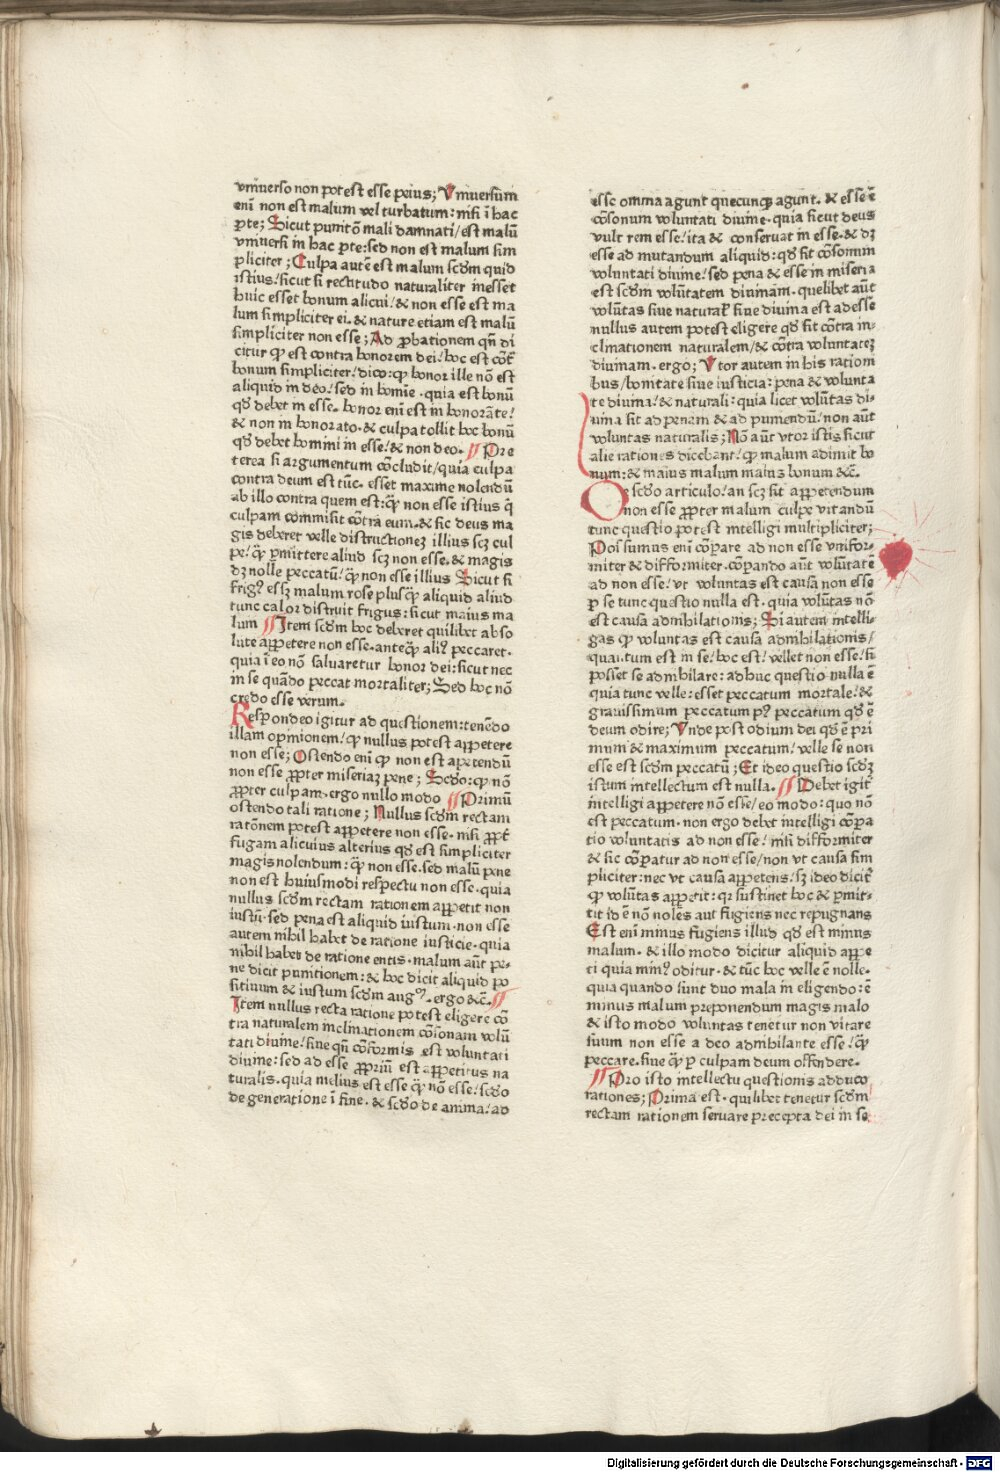 vniuerso non potest esse peius; Vniuersum
eni᷑ non est malum vel turbatum: nisi ĩ hac
ꝑte; Sicut punitõ mali damnati/est malũ
vniuersi in hac ꝑte: sed non est malum sim
pliciter; Culpa autẽ est malum scd̃m quid
istius/ sicut si rectitudo naturaliter inesset
huic esset bonum alicui/ & non esse est ma
lum simpliciter ei. & nature etiam est malũ
simpliciter non esse; Ad ꝓbationem qñ di
citur ꝙ est contra bonorem dei/ hoc est cõt̃
bonum simpliciter/ dico: ꝙ honor ille nõ est
aliquid in deo/ sed in homĩe. quia est bonũ
qd̃ debet in esse. honor eni᷑ est in honorãte/
& non in honorato. & culpa tollit hoc bonũ
qd̃ debet homini in esse/ & non deo. Pre
terea si argumentum cõcludit/ quia culpa
contra deum est tũc. esset maxime nolendũ
ab illo contra quem est: ꝙ̃ non esse istius q̃
culpam commisit cõtra eum. & sic deus ma
gis deberet velle distructionez illius scz cul
pe/ ꝙ̃ ꝑmittere aliud scz non esse. & magis
dz nolle peccatũ/ ꝙ̃ non esse illius Sicut si
frigꝰ essz malum rose plusꝙ̃ aliquid aliud
tunc calor distruit frigus: sicut maius ma
lum Item scd̃m hoc deberet quilibet abso
lute appetere non esse. anteꝙ̃ aliꝰ peccaret.
quia ĩ eo nõ saluaretur honor dei: sicut nec
in se quãdo peccat mortaliter; Sed hoc nõ
credo esse verum.
Respondeo igitur ad questionem: tenẽdo
illam opinionem/ ꝙ nullus potest appetere
non esse; Ostendo eni᷑ ꝙ non est apetendũ
non esse ꝓpter miseriaz pene; Scd̃o: ꝙ nõ
ꝓpter culpam. ergo nullo modo Primũ
ostendo tali ratione; Nullus scd̃m rectam
ratõnem potest appetere non esse. nisi ꝓpt̃
fugam alicuius alterius qd̃ est simpliciter
magis nolendum: ꝙ̃ non esse. sed malũ pene
non est huiusmodi respectu non esse. quia
nullus scd̃m rectam rationem appetit non
iustũ. sed pena est aliquid iustum. non esse
autem nihil habet de ratione iusticie. quia
nihil habet de ratione entis. malum aũt pe⸗
ne dicit punitionem: & hoc dicit aliquid po
sitiuum & iustum scd̃m augꝰ. ergo &c̃.
Item nullus recta ratione potest eligere cõ
tra naturalem inclinationem cõsonam volũ
tati diuine/ siue qñ cõformis est voluntati
diuine: sed ad esse ꝓpriũ est appetitus na
turalis. quia melius est esse ꝙ̃ nõ esse/ scd̃o
de generatione ĩ fine. & scd̃o de anima/ ad
esse omnia agunt quecunqꝫ agunt. & esse ẽ
cõsonum voluntati diuine. quia sicut deus
vult rem esse/ ita & conseruat in esse. & dz
esse ad mutandum aliquid: qd̃ sit cõsonum
voluntati diuine/ sed pena & esse in miseria
est scd̃m volũtatem diuinam. quelibet aũt
volũtas siue natural̃ siue diuina est ad esse
nullus autem potest eligere qd̃ sit cõtra in⸗
clinationem naturalem/ & cõtra voluntatez
diuinam. ergo; Vtor autem in his rationi
bus/ bonitate siue iusticia: pena & volunta
te diuina/ & naturali: quia licet volũtas di⸗
uina sit ad penam & ad puniendũ/ non aũt
voluntas naturalis; Nõ aũt vtor istis sicut
alie rationes dicebant/ ꝙ malum adimit bo
num: & maius malum maiuz bonum &c̃.
De scd̃o articulo/ an scz sit appetendum
non esse ꝓpter malum culpe vitandũ
tunc questio potest intelligi multipliciter;
Possumus eni᷑ cõpare ad non esse vnifor⸗
miter & difformiter. cõpando aũt volũtatẽ
ad non esse/ vt voluntas est causa non esse
ꝑ se tunc questio nulla est. quia volũtas nõ
est causa adnihilationis; Si autem intelli⸗
gas ꝙ voluntas est causa adnihilationis/
quantum est in se/ hoc est/ vellet non esse/ si
posset se adnihilare: adhuc questio nulla ẽ
quia tunc velle: esset peccatum mortale/ &
grauissimum peccatum pꝰ peccatum qd̃ ẽ
deum odire; Vnde post odium dei qd̃ ẽ pri
mum & maximum peccatum/ velle se non
esse est scd̃m peccatũ; Et ideo questio scd̃z
istum intellectum est nulla. Debet igit̃
intelligi appetere nõ esse/ eo modo: quo nõ
est peccatum. non ergo debet intelligi cõpa
tio voluntatis ad non esse/ nisi difformiter
& sic cõpatur ad non esse/ non vt causa sim
pliciter: nec vt causa appetens/ sz ideo dicit̃
ꝙ volũtas appetit: qr sustinet hoc & ꝑmit⸗
tit id ẽ nõ nolẽs aut fugiens nec repugnans
Est eni᷑ minus fugiens illud qd̃ est minus
malum. & illo modo dicitur aliquid appe
ti quia minꝰ oditur. & tũc hoc velle ẽ nolle.
quia quando sunt duo mala in eligendo: ẽ
minus malum preponendum magis malo
& isto modo voluntas tenetur non vitare
suum non esse a deo adnihilante esse/ ꝙ̃
peccare. siue ꝙ̃ ꝑ culpam deum offendere.
Pro isto intellectu questionis adduco
rationes; Prima est. quilibet tenetur scd̃m
rectam rationem seruare precepta dei in se
Digitalisierung gefördert durch die Deutsche Forschungsgemeinschaft - DFG